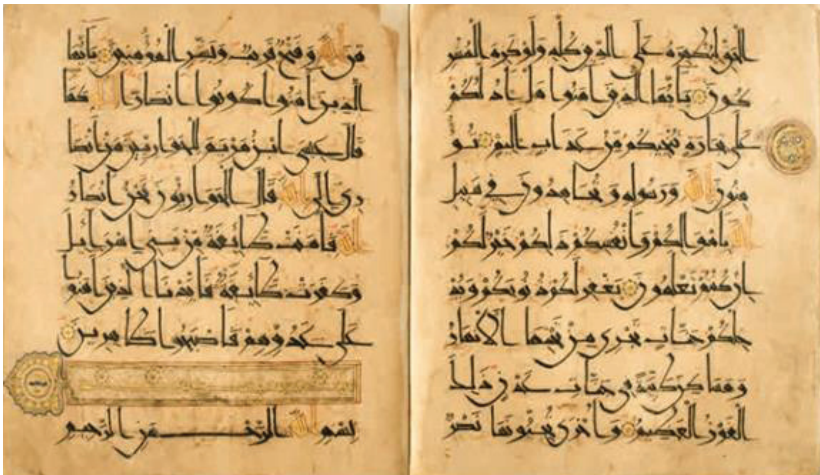 الحق ليظهره على الدين كله ولو كره المشر
كون يايها الذين امنوا هل ادلكم
على تجارة تنجيكم من عذاب اليم تؤ
منون بالله ورسوله وتجاهدون في سبيل
الله باموالكم وانفسكم ذلكم خير لكم
ان كنتم تعلمون يغفر لكم ذنوبكم ويد
خلكم جنات تجري من تحتها الانهار
ومساكن طيبة في جنات عدن ذلك
الفوز العظيم واخرى تحبونها نصر
من الله وفتح قريب وبشر المؤمنين يايها
الذين امنوا كونوا انصارا لله كما
قال عيسى ابن مريم للحواريين من انصا
ري الى الله قال الحواريون نحن انصار
الله فامنت طائفة من بني اسرائيل
وكفرت طائفة فايدنا الذين امنوا
على عدوهم فاصبحوا ظاهرين
بسم الله الرحمن الرحيم